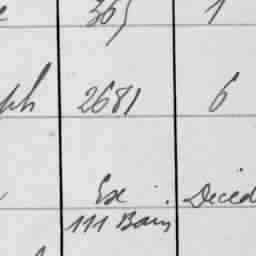 365 1
ph 2681 6
Ex . Decied
111 Bain